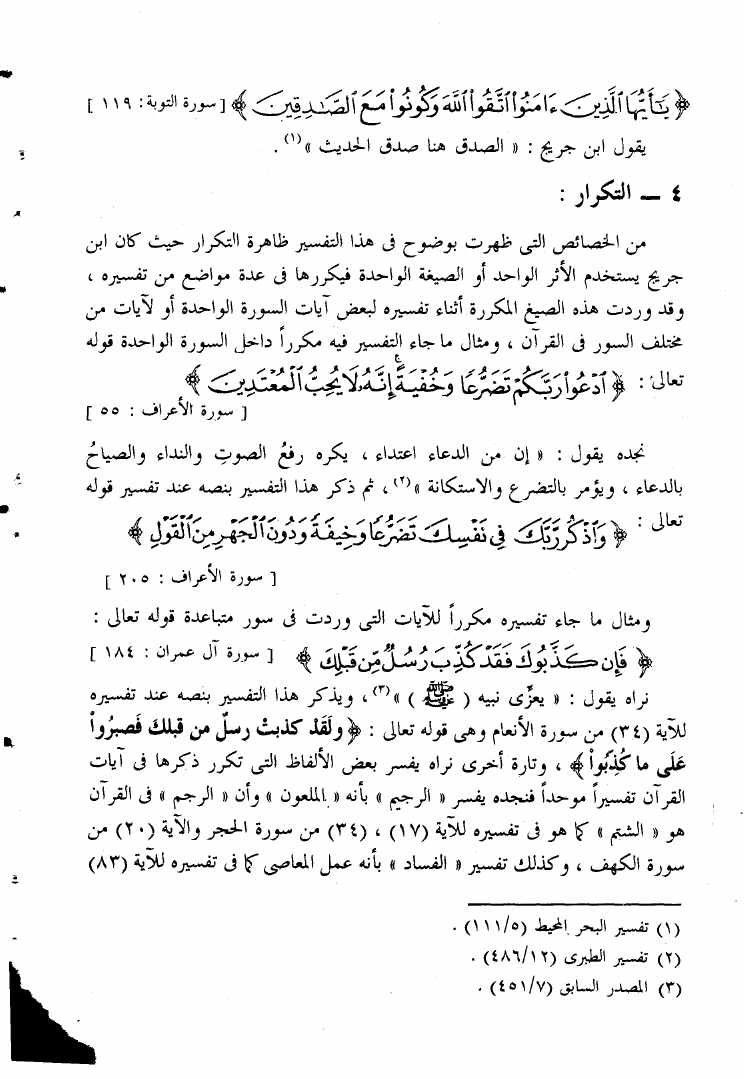 ﴿ يَـٰٓأَيُّهَا ٱلَّذِينَ ءَامَنُوا۟ ٱتَّقُوا۟ ٱللَّهَ وَكُونُوا۟ مَعَ ٱلصَّـٰدِقِينَ ﴾ [ سورة التوبة : ١١٩ ]
يقول ابن جريج : « الصدق هنا صدق الحديث »(١) .
٤ ــ التكرار :
من الخصائص التى ظهرت بوضوح فى هذا التفسير ظاهرة التكرار حيث كان ابن
جريج يستخدم الأثر الواحد أو الصيغة الواحدة فيكررها فى عدة مواضع من تفسيره ،
وقد وردت هذه الصيغ المكررة أثناء تفسيره لبعض آيات السورة الواحدة أو لآيات من
مختلف السور فى القرآن ، ومثال ما جاء التفسير فيه مكرراً داخل السورة الواحدة قوله
تعالى : ﴿ ٱدْعُوا۟ رَبَّكُمْ تَضَرُّعًا وَخُفْيَةً إِنَّهُۥ لَا يُحِبُّ ٱلْمُعْتَدِينَ ﴾
[ سورة الأعراف : ٥٥ ]
نجده يقول : « إن من الدعاء اعتداء ، يكره رفعُ الصوتِ والنداء والصياحُ
بالدعاء ، ويؤمر بالتضرع والاستكانة »(٢) ، ثم ذكر هذا التفسير بنصه عند تفسير قوله
تعالى : ﴿ وَٱذْكُر رَّبَّكَ فِى نَفْسِكَ تَضَرُّعًا وَخِيفَةً وَدُونَ ٱلْجَهْرِ مِنَ ٱلْقَوْلِ ﴾
[ سورة الأعراف : ٢٠٥ ]
ومثال ما جاء تفسيره مكرراً للآيات التى وردت فى سور متباعدة قوله تعالى :
﴿ فَإِن كَذَّبُوكَ فَقَدْ كُذِّبَ رُسُلٌ مِّن قَبْلِكَ ﴾ [ سورة آل عمران : ١٨٤ ]
نراه يقول : « يعزِّى نبيه ( ﷺ ) »(٣) ، ويذكر هذا التفسير بنصه عند تفسيره
للآية (٣٤) من سورة الأنعام وهى قوله تعالى : ﴿ ولَقَدْ كذبتْ رسلٌ من قبلك فَصبرُواْ
عَلَى ما كُذِّبُواْ ﴾ ، وتارة أخرى نراه يفسر بعض الألفاظ التى تكرر ذكرها فى آيات
القرآن تفسيراً موحداً فنجده يفسر « الرجيم » بأنه « الملعون » وأن « الرجم » فى القرآن
هو « الشتم » كما هو فى تفسيره للآية (١٧) ، (٣٤) من سورة الحجر والآية (٢٠) من
سورة الكهف ، وكذلك تفسير « الفساد » بأنه عمل المعاصى كما فى تفسيره للآية (٨٣)
(١) تفسير البحر المحيط (١١١/٥) .
(٢) تفسير الطبرى (٤٨٦/١٢) .
(٣) المصدر السابق (٤٥١/٧) .